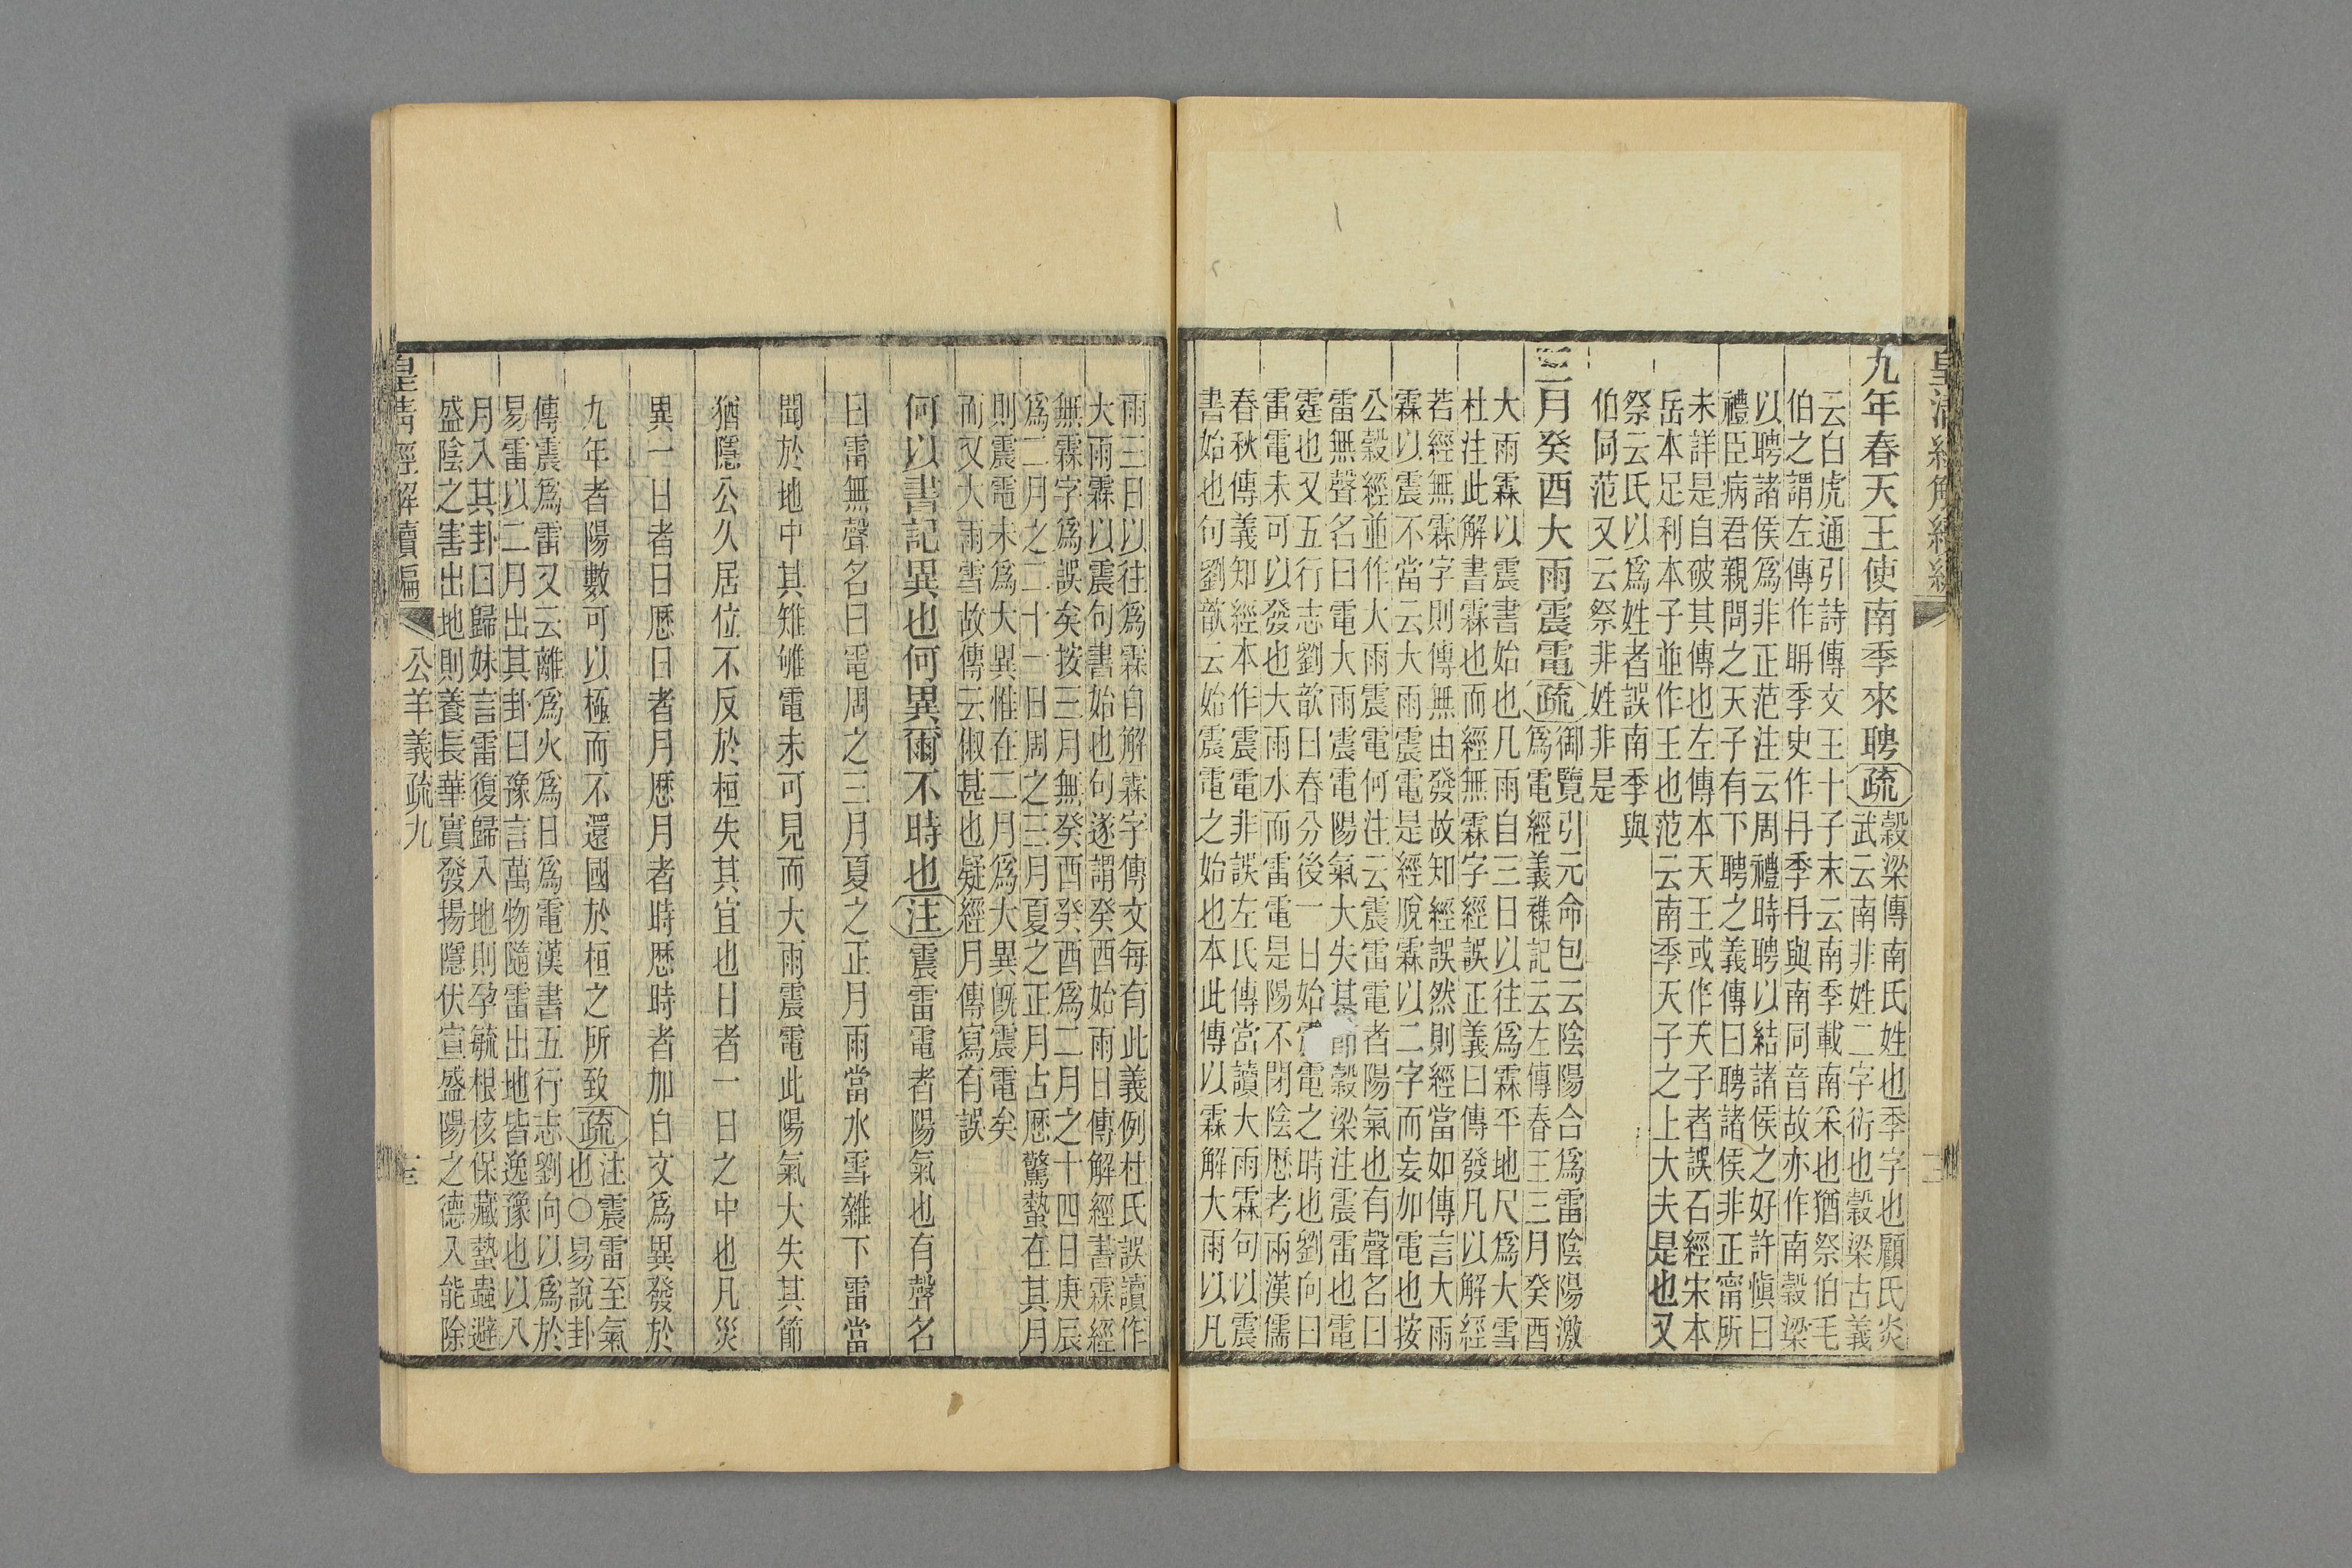 皇清經解續編
九年春天王使南季來聘疏
穀梁傳南氏姓也季字也顧氏炎
武云南非姓二字衍也穀梁古義
云白虎通引詩傳文王十子末云南季載南采也猶祭伯毛
伯之謂左傳作聃季史作冄季冄與南同音故亦作南穀梁
以聘諸侯爲非正范注云周禮時聘以結諸侯之好許愼曰
禮臣病君親問之天子有下聘之義傳曰聘諸侯非正甯所
未詳是自破其傳也左傳本天王或作天子者誤石經宋本
岳本足利本子並作王也范云南季天子之上大夫是也又
祭云氏以爲姓者誤南季與
伯同范又云祭非姓非是
三月癸酉大雨震電疏
御覽引元命包云陰陽合爲雷陰陽激
爲電經義襍記云左傳春王三月癸酉
大雨霖以震書始也凡雨自三日以往爲霖平地尺爲大雪
杜注此解書霖也而經無霖字經誤正義曰傳發凡以解經
若經無霖字則傳無由發故知經誤然則經當如傳言大雨
霖以震不當云大雨震電是經脫霖以二字而妄加電也按
公穀經並作大雨震電何注云震雷電者陽氣也有聲名曰
雷無聲名曰電大雨震電陽氣大失其節穀梁注震雷也電
霆也又五行志劉歆曰春分後一日始震電之時也劉向曰
雷電未可以發也大雨水而雷電是陽不閉陰厯考兩漢儒
春秋傳義知經本作震電非誤左氏傳當讀大雨霖句以震
書始也句劉歆云始震電之始也本此傳以霖解大雨以凡
雨三日以往爲霖自解霖字傳文每有此義例杜氏誤讀作
大雨霖以震句書始也句遂謂癸酉始雨日傳解經書霖經
無霖字爲誤矣按三月無癸酉癸酉爲二月之十四日庚辰
爲二月之二十一日周之三月夏之正月古厯驚蟄在其月
則震電未爲大異惟在二月爲大異旣震電矣
而又大雨雪故傳云俶甚也疑經月傳寫有誤
何以書記異也何異爾不時也注震雷電者陽氣也有聲名
曰雷無聲名曰電周之三月夏之正月雨當水雪雜下雷當
聞於地中其雉雊電未可見而大雨震電此陽氣大失其節
猶隱公久居位不反於桓失其宜也日者一日之中也凡災
異一日者日厯日者月厯月者時厯時者加自文爲異發於
九年者陽數可以極而不還國於桓之所致疏
注震雷至氣
也○易說卦
傳震爲雷又云離爲火爲日爲電漢書五行志劉向以爲於
易雷以二月出其卦曰豫言萬物隨雷出地皆逸豫也以八
月入其卦曰歸妹言雷復歸入地則孕毓根核保藏蟄蟲避
盛陰之害出地則養長華實發揚隱伏宣盛陽之德入能除
皇淸經解續編
公羊義疏九